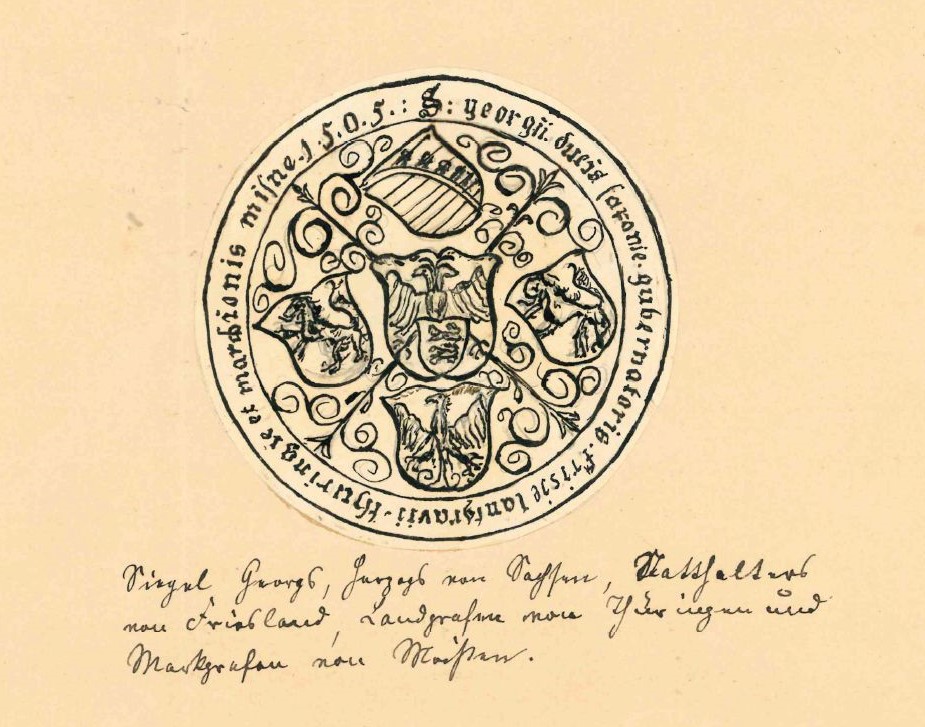 S: georgii. ducis saxonie. gubernatoris. frisie lantgravii. thuringie et marchionis misne. 1.5.0.5.:
Siegel Georgs, Herzogs von Sachsen, Statthalters
von Friesland, Landgrafen von Thüringen und
Markgrafen von Meißen.